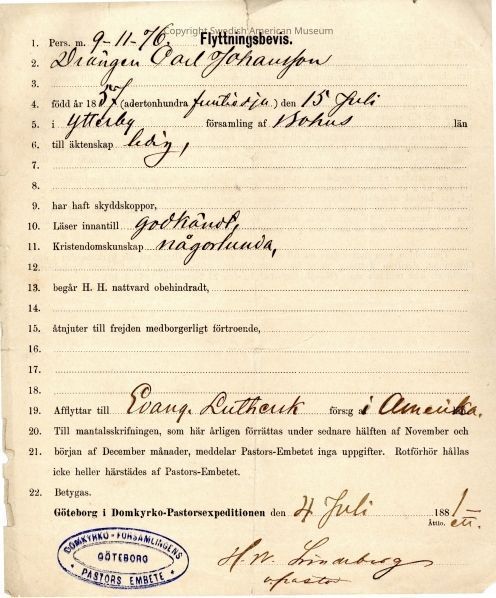 Copyright Swedish American Museum
Flyttningsbevis.
1. Pers. m. 9-11-76.
2. Drängen Carl Johansson
3.
4. född år 1857 (adertonhundra femtiosju) den 15 Juli
5. i Ytterby församling af Bohus län
6. till äktenskap ledig,
7.
8.
9. har haft skyddskoppor,
10. Läser innantill godkändt,
11. Kristendomskunskap någorlunda,
12.
13. begår H. H. nattvard obehindradt,
14.
15. åtnjuter till frejden medborgerligt förtroende,
16.
17.
18.
19. Afflyttar till Evang. Luthersk förs:g af i Amerika.
20. Till mantalsskrifningen, som här årligen förrättas under sednare hälften af November och
21. början af December månader, meddelar Pastors-Embetet inga uppgifter. Rotförhör hållas
icke heller härstädes af Pastors-Embetet.
22. Betygas.
Göteborg i Domkyrko-Pastorsexpeditionen den 4 Juli 1881
Åttio. ett.
DOMKYRKO-FÖRSAMLINGENS
GÖTEBORG
PASTORS EMBETE
H. W.